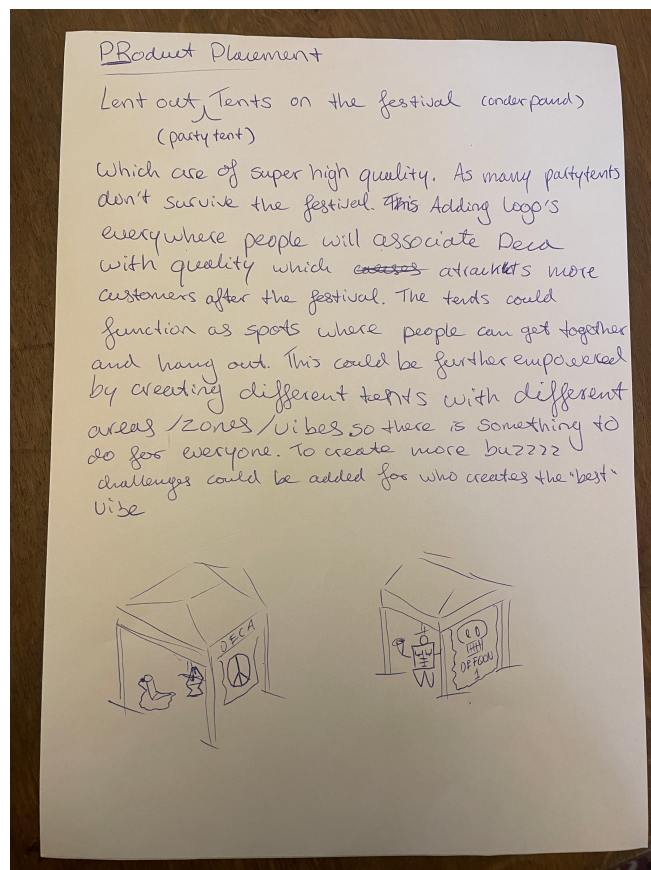 PRoduct Placement
Lent out Tents on the festival (onder pand)
(party tent)
Which are of super high quality. As many partytents
don't survive the festival. This Adding Logo's
everywhere people will associate Deca
with quality which causes attracts more
customers after the festival. The tends could
function as spots where people can get together
and hang out. This could be further empowered
by creating different tents with different
areas/zones/vibes so there is something to
do for everyone. To create more buzzzz
challenges could be added for who creates the "best"
vibe
DECA
DEFQON
1